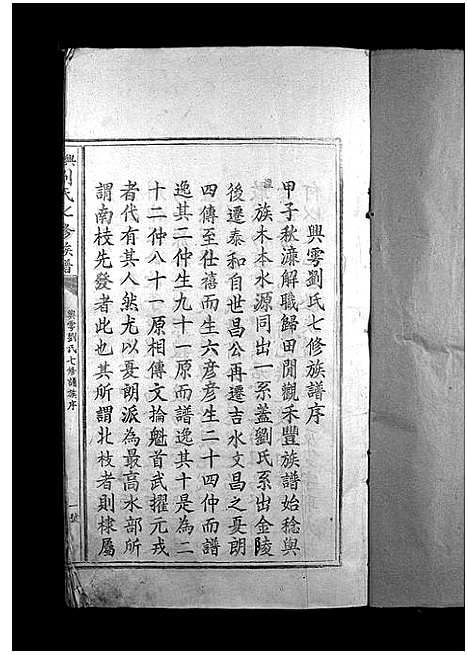 興雩劉氏七修族譜序
甲子秋濂解職歸田閒觀禾豐族譜始稔與
族木本水源同出一系蓋劉氏系出金陵
後遷泰和自世昌公再遷吉水文昌之戛朗
四傳至仕禧而生六彥彥生二十四仲而譜
逸其二仲生九十一原而譜逸其十是為二
十二仲八十一原相傳文掄魁首武擢元戎
者代有其人然尤以戛朗派為最高水部所
謂南枝先發者此也其所謂北枝者則棣屬
興 劉氏七修族譜
興雩劉氏七修譜族序
一號